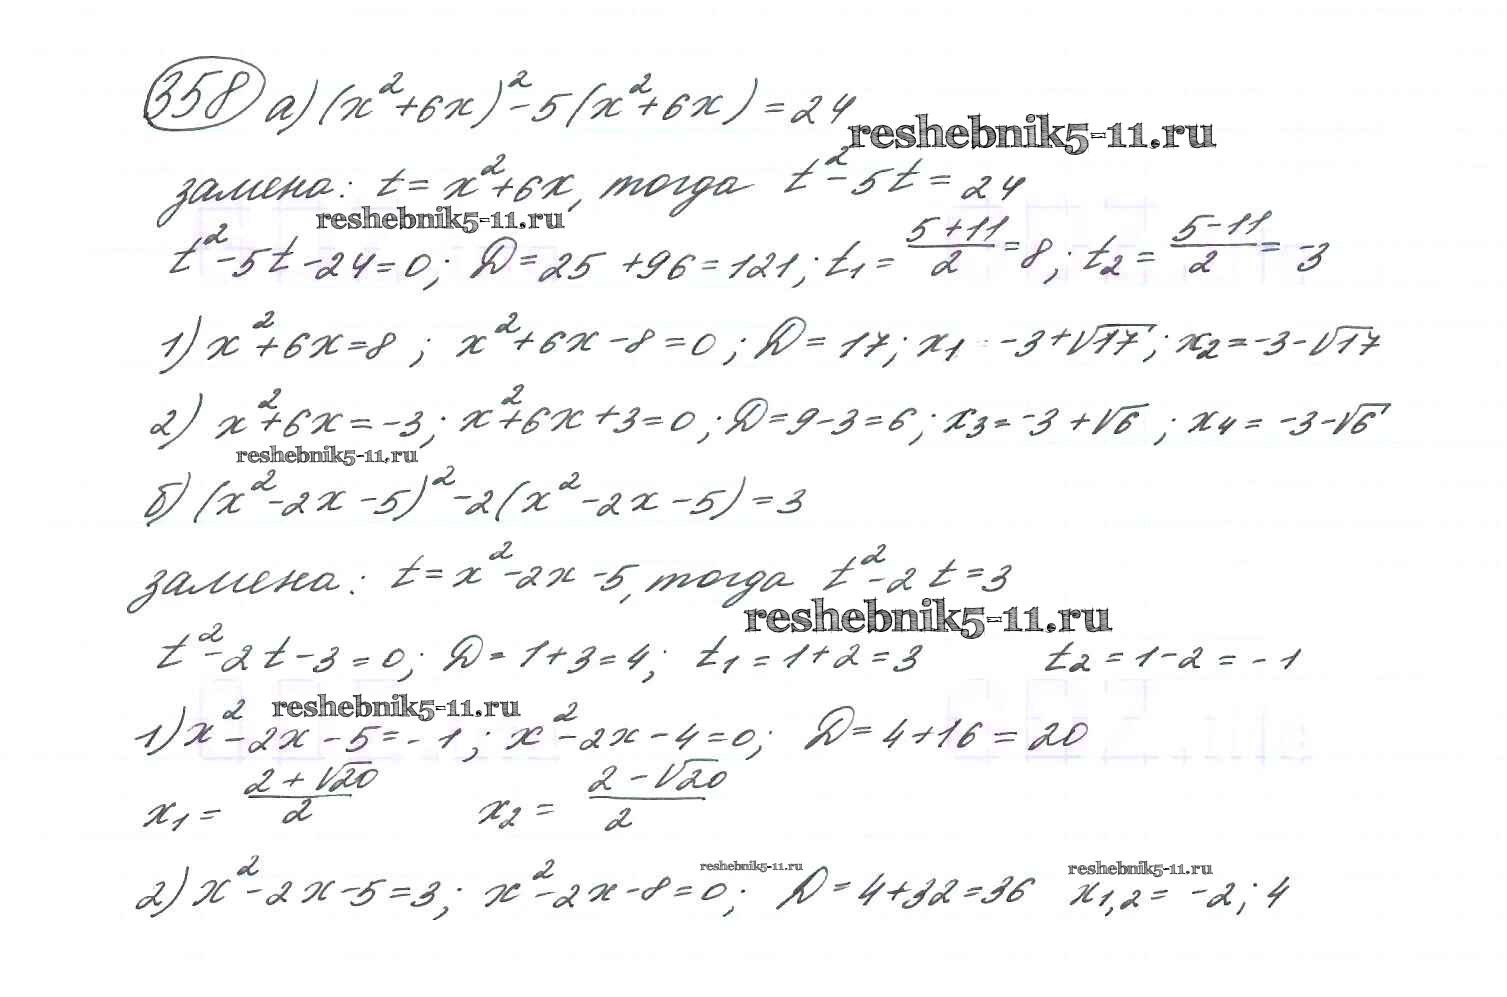 358 а) (x²+6x)²-5(x²+6x)=24
reshebnik5-11.ru
замена: t=x²+6x, тогда t²-5t=24
reshebnik5-11.ru
t²-5t-24=0; D=25+96=121; t₁=(5+11)/2=8; t₂=(5-11)/2=-3
1) x²+6x=8; x²+6x-8=0; D=17; x₁ -3+√17; x₂=-3-√17
2) x²+6x=-3; x²+6x+3=0; D=9-3=6; x₃=-3+√6; x₄=-3-√6
reshebnik5-11.ru
б) (x²-2x-5)²-2(x²-2x-5)=3
замена: t=x²-2x-5, тогда t²-2t=3
reshebnik5-11.ru
t²-2t-3=0; D=1+3=4; t₁=1+2=3 t₂=1-2=-1
reshebnik5-11.ru
1) x²-2x-5=-1; x²-2x-4=0; D=4+16=20
x₁=(2+√20)/2 x₂=(2-√20)/2
reshebnik5-11.ru reshebnik5-11.ru
2) x²-2x-5=3; x²-2x-8=0; D=4+32=36 x₁,₂=-2; 4